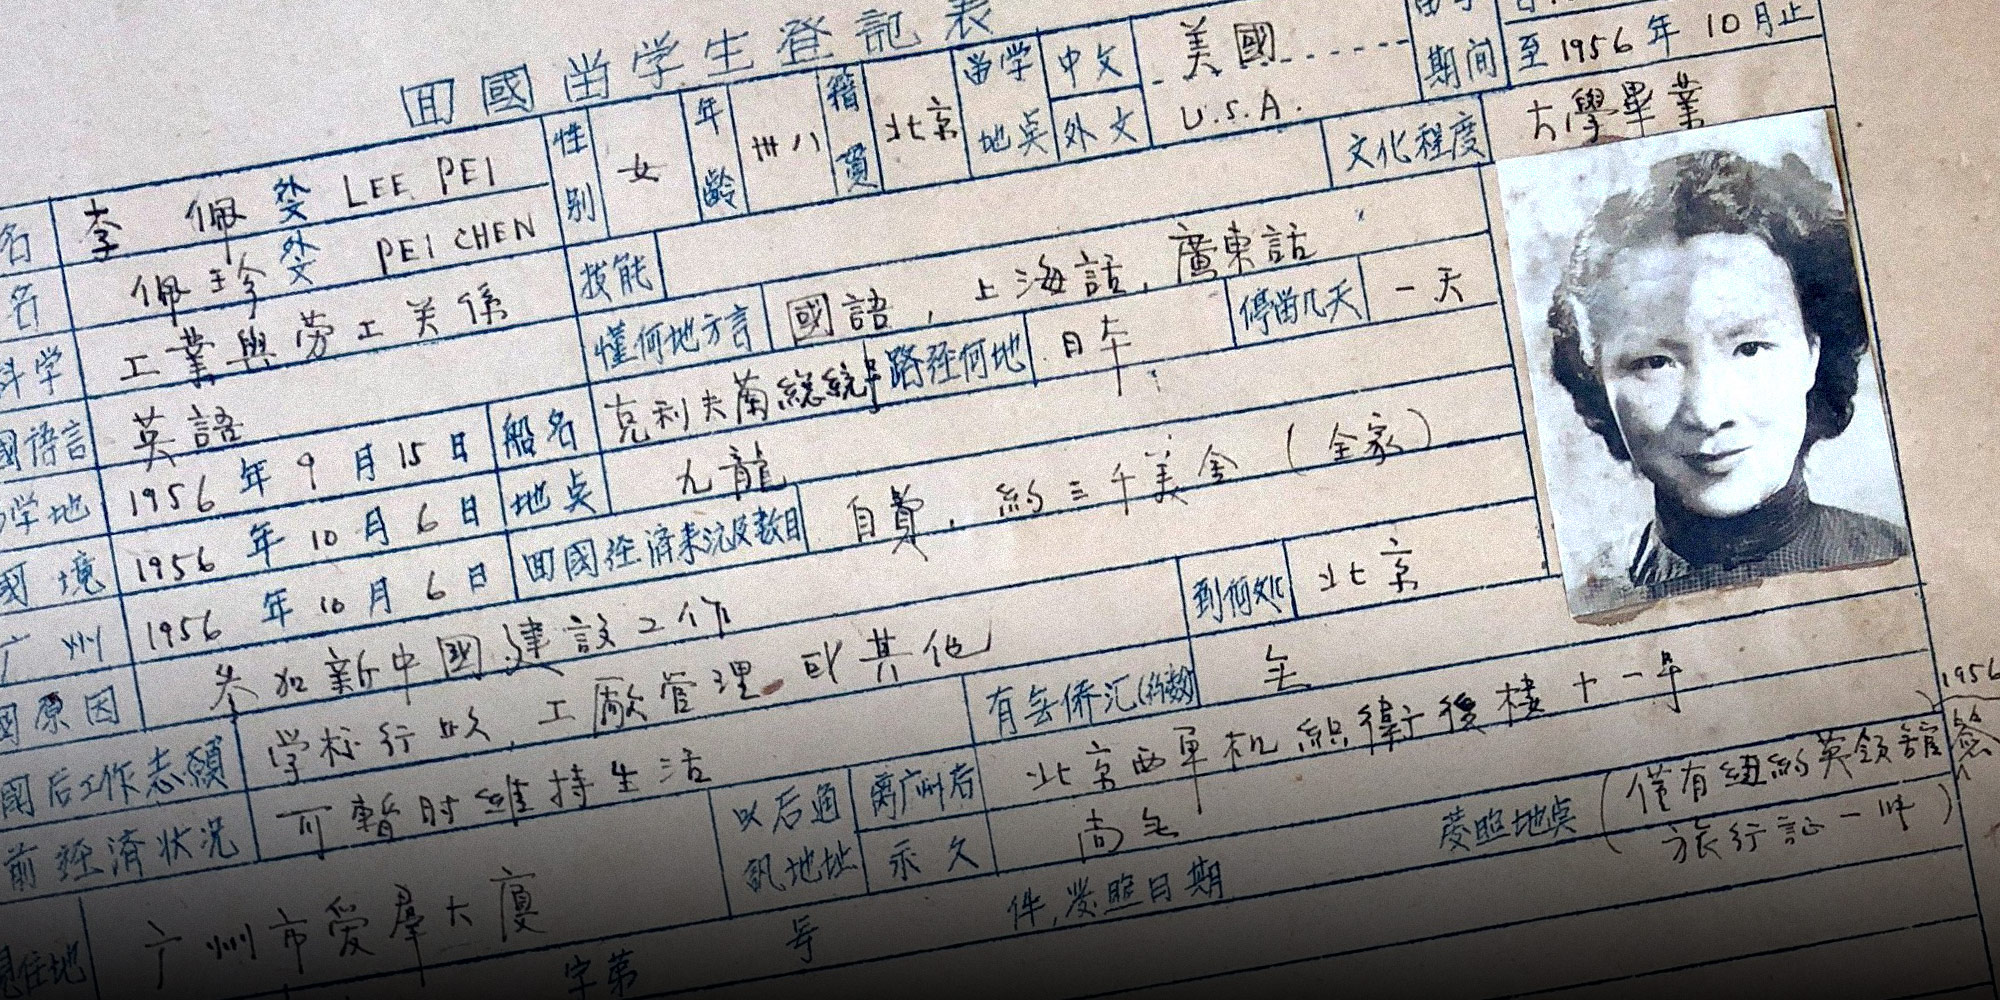 回國留学生登記表
名 李佩 外文 LEE PEI 性别 女 年齡 卅八 籍貫 北京 留学地点 中文 美國 外文 U.S.A. 期间 至1956年10月止
名 佩珍 外文 PEI CHEN 技能 文化程度 大學畢業
科学 工業與劳工关係 懂何地方言 國語，上海話，廣東話
國語言 英語 船名 克利夫蘭總統号 路经何地 日本 停留几天 一天
学地 1956年9月15日 地点 九龍
國境 1956年10月6日 回國经济来沅及数目 自費，約三千美金（全家）
广州 1956年10月6日 到何处 北京
國原因 参加新中國建設工作 有无侨汇(约数) 无
國后工作志願 学校行政，工廠管理或其他
前经濟状况 可暫时維持生活 以后通訊地址 离广州后 北京西單机織衛後樓十一号
永久 尚无
住地 广州市爱羣大廈
字第 号 件，發照日期 發照地点（僅有紐約英領館1956签
旅行証一吋）